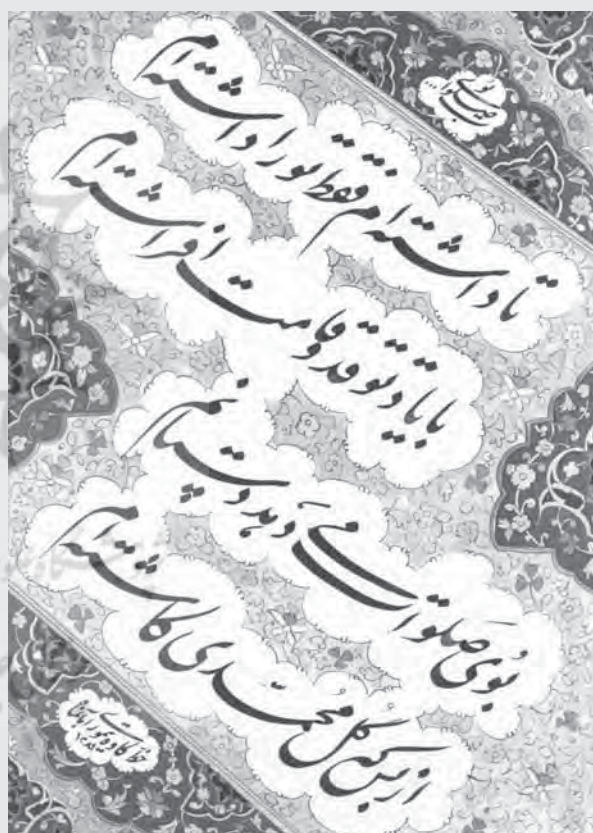 تا داشته‌ام فقط تو را داشته‌ام
با یاد تو قد و قامت افراشته‌ام
بوی صلوات می دهد دستانم
از بس که گل محمدی کاشته‌ام